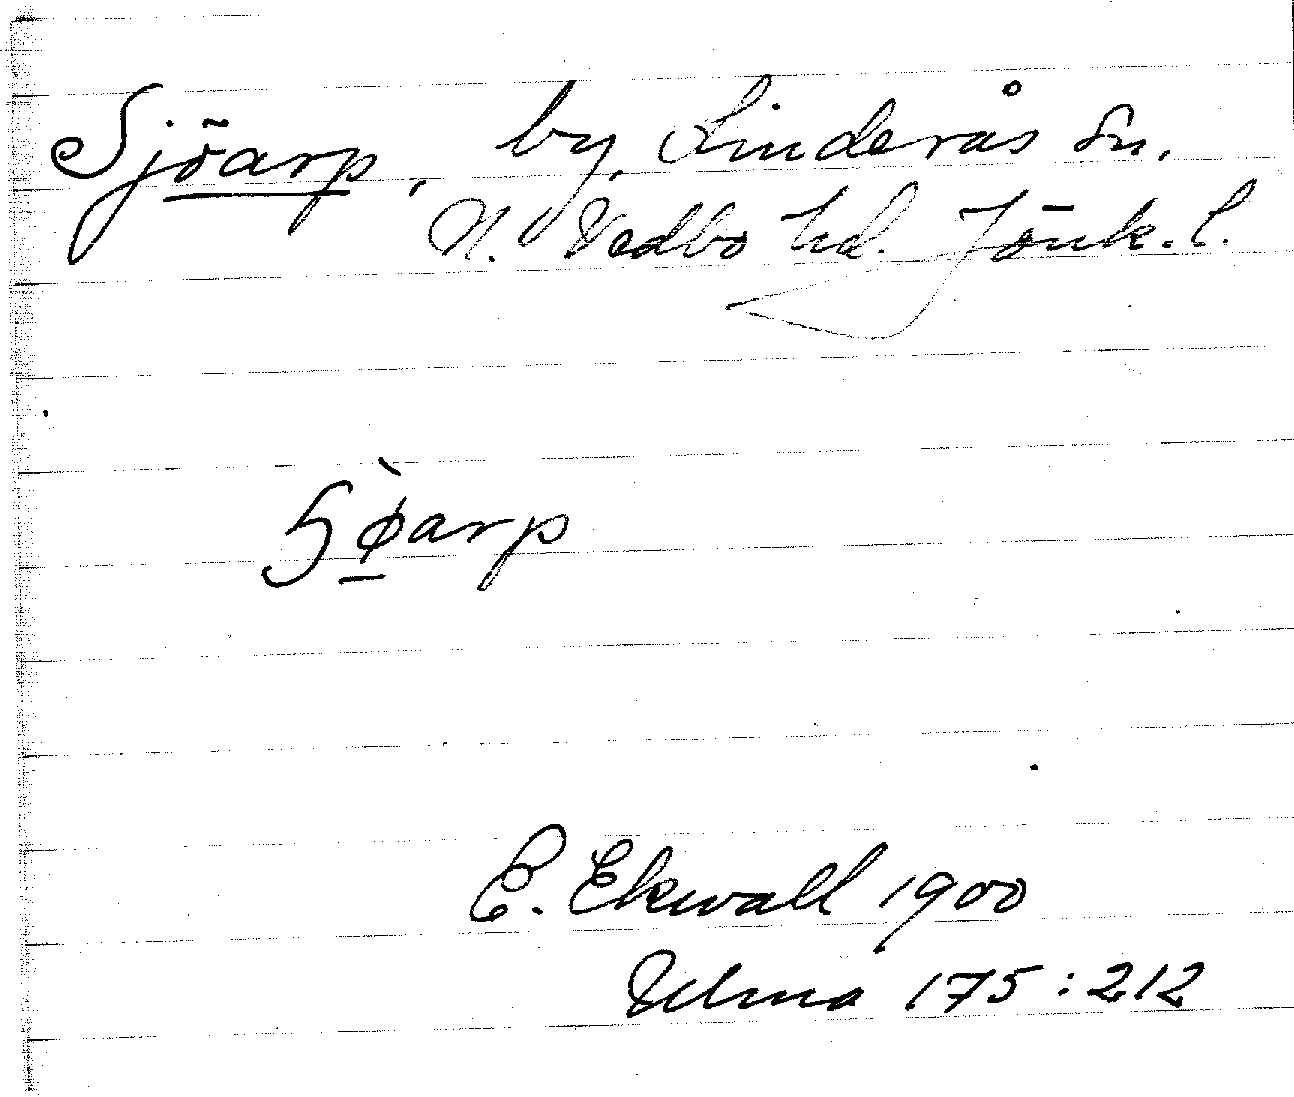 Sjöarp, by, Linderås sn.
N. Vedbo hd. Jönk. l.
ʃø̀arp
E. Ekwall 1900
Ulma 175:212